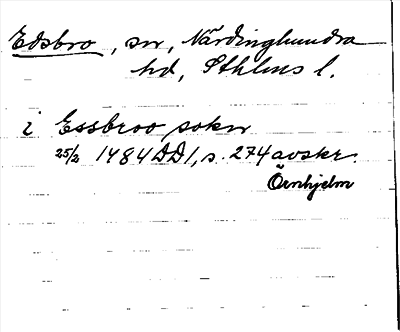 Edsbro, sn, Närdinghundra
hd, Sthlms l.
i Essbroo sokn
25/2 1484 DD1, s. 274 avskr.
Örnhjelm